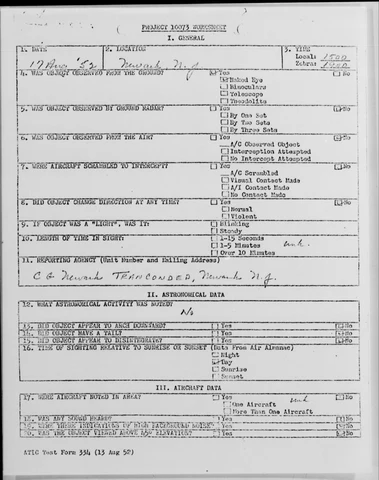 PROJECT 10073 WORKSHEET
I. GENERAL
1. DATE 2. LOCATION 3. TIME
17 Aug '52 Newark N.J. Local: 1500
Zebra: 1900
4. WAS OBJECT OBSERVED FROM THE GROUND? Yes No
Naked Eye
Binoculars
Telescope
Theodolite
5. WAS OBJECT OBSERVED BY GROUND RADAR? Yes No
By One Set
By Two Sets
By Three Sets
6. WAS OBJECT OBSERVED FROM THE AIR? Yes No
A/C Observed Object
Interception Attempted
No Intercept Attempted
7. WERE AIRCRAFT SCRAMBLED TO INTERCEPT? Yes No
A/C Scrambled
Visual Contact Made
A/I Contact Made
No Contact Made
8. DID OBJECT CHANGE DIRECTION AT ANY TIME? Yes No
Normal
Violent
9. IF OBJECT WAS A "LIGHT", WAS IT: Blinking
Steady
10. LENGTH OF TIME IN SIGHT: 1-15 Seconds
1-5 Minutes unk.
Over 10 Minutes
11. REPORTING AGENCY (Unit Number and Mailing Address)
CG Newark Newark N.J.
II. ASTRONOMICAL DATA
12. WHAT ASTRONOMICAL ACTIVITY WAS NOTED?
No
13. DID OBJECT APPEAR TO ARCH DOWNWARD? Yes No
14. DID OBJECT HAVE A TAIL? Yes No
15. DID OBJECT APPEAR TO DISINTEGRATE? Yes No
16. TIME OF SIGHTING RELATIVE TO SUNRISE OR SUNSET (Data From Air Almanac)
Night
Day
Sunrise
Sunset
III. AIRCRAFT DATA
17. WERE AIRCRAFT NOTED IN AREA? Yes unk No
One Aircraft
More Than One Aircraft
18. WAS ANY SOUND HEARD? Yes No
19. WERE THERE INDICATIONS OF HIGH BACKGROUND NOISE? Yes No
20. WAS THE OBJECT VIEWED ABOVE 45° ELEVATION? Yes No
ATIC Test Form 334 (13 Aug 52)